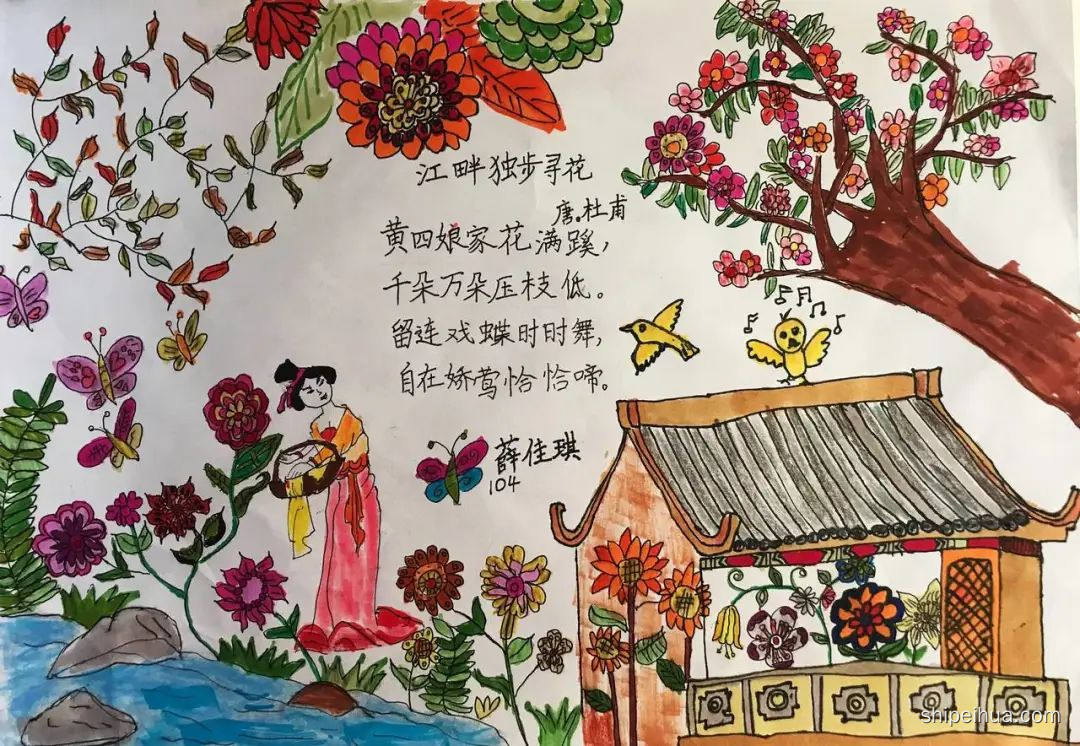 江畔独步寻花
唐。杜甫
黄四娘家花满蹊，
千朵万朵压枝低。
留连戏蝶时时舞，
自在娇莺恰恰啼。
薛佳琪
104
shipeihua.com